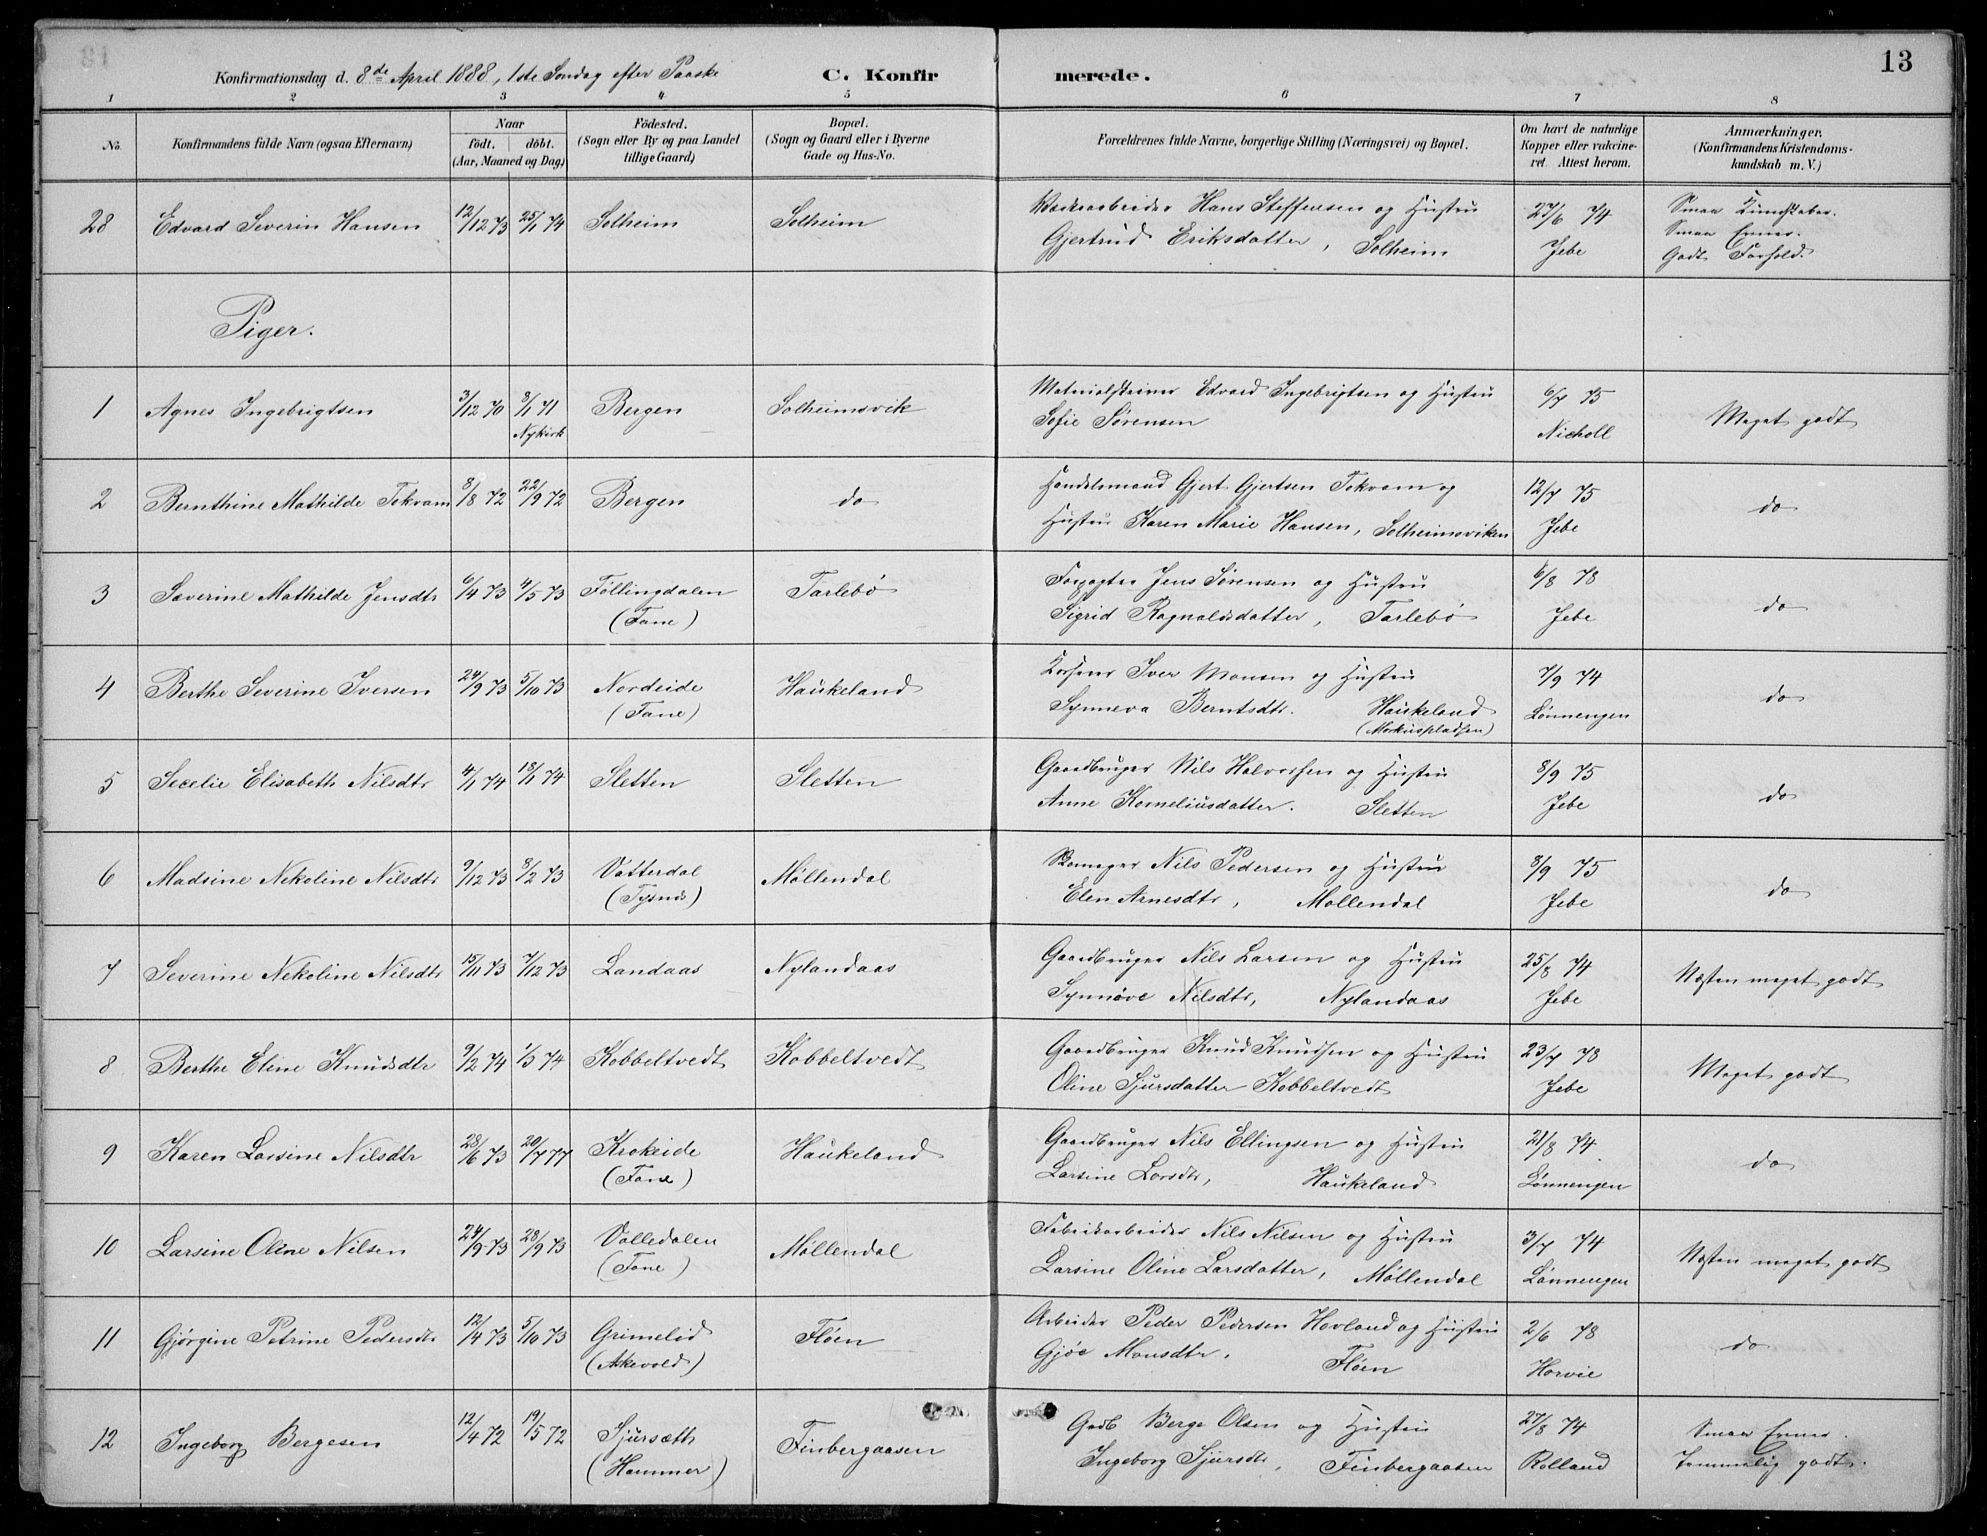 13
Konfirmationsdag d. 8de April 1888, 1ste Søndag efter Paaske C. Konfirmerede.
1 2 3 4 5 6 7 8
No.
Konfirmandens fulde Navn (ogsaa Efternavn)
Naar
født. døbt.
(Aar, Maaned og Dag)
Fødested.
(Sogn eller By og paa Landet
tillige Gaard)
Bopæl.
(Sogn og Gaard eller i Byerne
Gade og Hus-No.
Forældrenes fulde Navne, borgerlige Stilling (Næringsvei) og Bopæl.
Om havt de naturlige
Kopper eller vakcine-
ret. Attest herom.
Anmærkninger.
(Konfirmandens Kristendoms-
kundskab m. V.)
28 Edvard Severin Hansen 12/12 73 25/1 74 Solheim Solheim Hans Steffensen og Hustru 27/6 74 Smaa Kundskaber.
Gjertrud Eriksdatter, Solheim Jebe Smaa Evner.
Godt Forhold.
Piger.
1 Agnes Ingebrigtsen 3/12 70 8/1 71 Bergen Solheimsvik Edvard Ingebrigtsen og Hustru 6/7 75 Meget godt
Nykirk Sofie Sørensen Nicholl
2 Bernthine Mathilde Tokvam 8/8 72 22/9 72 Bergen do Handelsmand Gjert Gjertsen Tokvam og 12/7 75 do
Hustru Karen Marie Hansen, Solheimsviken Jebe
3 Severine Mathilde Jensdtr 6/4 73 4/5 73 Føllingdalen Tarlebø Forpagter Jens Sørensen og Hustru 6/8 78 do
(Fane) Sigrid Ragnaldsdatter, Tarlebø Jebe
4 Berthe Severine Iversen 24/9 73 5/10 73 Nordeide Haukeland Iver Monsen og Hustru 7/9 74 do
(Fane) Synneva Berntsdtr. Haukeland Lønnengen
(Markuspladsen)
5 Secelie Elisabeth Nilsdtr 4/1 74 18/1 74 Sletten Sletten Gaardbruger Nils Halvorsen og Hustru 8/9 75 do
Anne Korneliusdatter. Sletten Jebe
6 Madsine Nekoline Nilsdtr 9/12 73 8/2 73 Vatterdal Møllendal Skomager Nils Pedersen og Hustru 8/9 75 do
(Tysnæs) Elen Arnesdtr, Møllendal Jebe
7 Severine Nekoline Nilsdtr 15/11 73 7/12 73 Landaas Nylandaas Gaardbruger Nils Larsen og Hustru 25/8 74 Næsten meget godt
Synnøve Nilsdtr, Nylandaas Jebe
8 Berthe Eline Knudsdtr 9/2 74 1/3 74 Kobbeltvedt Kobbeltvedt Gaardbruger Knud Knudsen og Hustru 23/7 78 Meget godt
Oline Sjursdatter Kobbeltvedt Jebe
9 Karen Larsine Nilsdtr 28/6 73 20/7 77 Krokeide Haukeland Gaardbruger Nils Ellingsen og Hustru 21/8 74 do
(Fane) Larsine Larsdtr, Haukeland Lønnengen
10 Larsine Oline Nilsen 24/9 73 28/9 73 Valledalen Møllendal Fabrikarbeider Nils Nilsen og Hustru 3/7 74 Næsten meget godt
(Fane) Larsine Oline Larsdatter, Møllendal Lønnengen
11 Gjørgine Petrine Pedersdtr 12/4 73 5/10 73 Grimelid Fløen Arbeider Peder Pedersen Hovland og Hustru 2/6 78 do
(Askevold) Gjøe Monsdtr, Fløen Horvie
12 Ingeborg Bergesen 12/4 72 19/5 72 Sjursæth Finbergaasen Gadb Berge Olsen og Hustru 27/8 74 Smaa Evner.
(Hammer) Ingeborg Sjursdtr, Finbergaasen Rolland Temmelig godt.